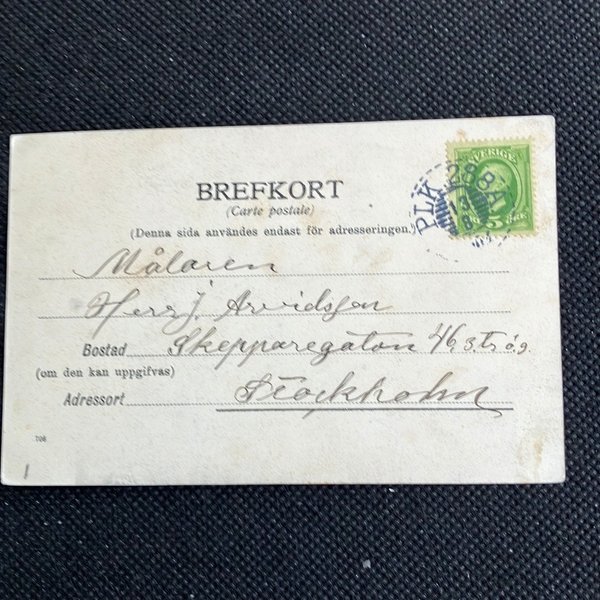 BREFKORT
(Carte postale)
(Denna sida användes endast för adresseringen.)
SVERIGE
5 ÖRE
PLK 288A
13
Målaren
Herr J. Arvidsson
Bostad Skepparegatan 46, 3. tr. ö. g.
(om den kan uppgifvas)
Adressort Stockholm
708
1